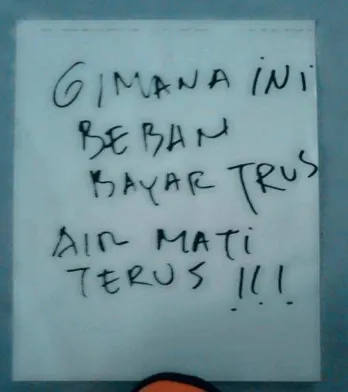 GIMANA INI
BEBAN
BAYAR TRUS
AIR MATI
TERUS !!!